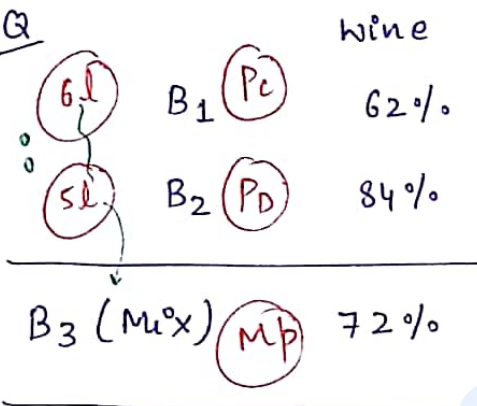 Q
wine
6l B1 Pc 62%
:
5l B2 PD 84%
B3 (Mix) Mp 72%